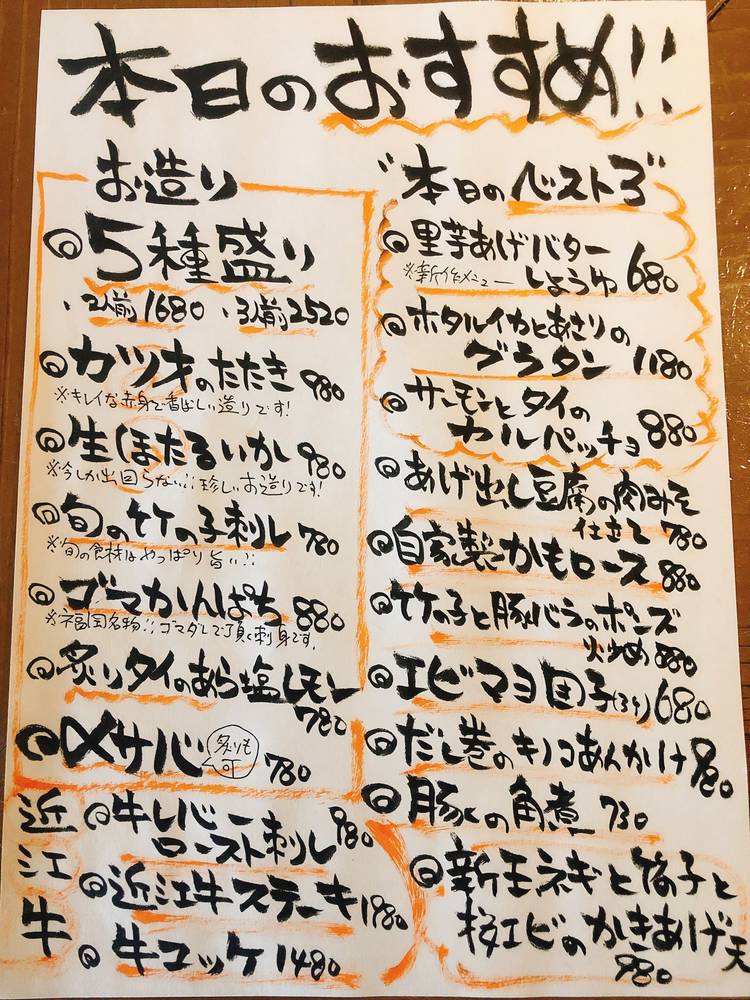 本日のおすすめ!!
お造り
◎5種盛り
・2人前1680 ・3人前2520
◎カツオのたたき 980
※キレイな赤身で香ばしい造りです!
◎生ほたるいか 980
※今しか出回らない!!珍しいお造りです!
◎旬の竹の子刺し 780
※旬の食材はやっぱり旨い!!
◎ゴマかんぱち 880
※福岡名物!!ゴマダレで頂く刺身です。
◎炙りタイのあら塩レモン
780
◎〆サバ 炙りも可 780
近江牛
◎牛レバー
ロースト刺し 980
◎近江牛ステーキ 1980
◎牛ユッケ 1480
"本日のベスト3"
◎里芋あげバター
※新作メニュー しょうゆ 680
◎ホタルイカとあさりの
グラタン 1180
◎サーモンとタイの
カルパッチョ 880
◎あげ出し豆腐の肉みそ
仕立て 780
◎自家製かもロース 880
◎竹の子と豚バラのポンズ
炒め 880
◎エビマヨ団子 680
◎だし巻のキノコあんかけ 980
◎豚の角煮 730
◎新玉ネギと筍子と
桜エビのかきあげ天
980